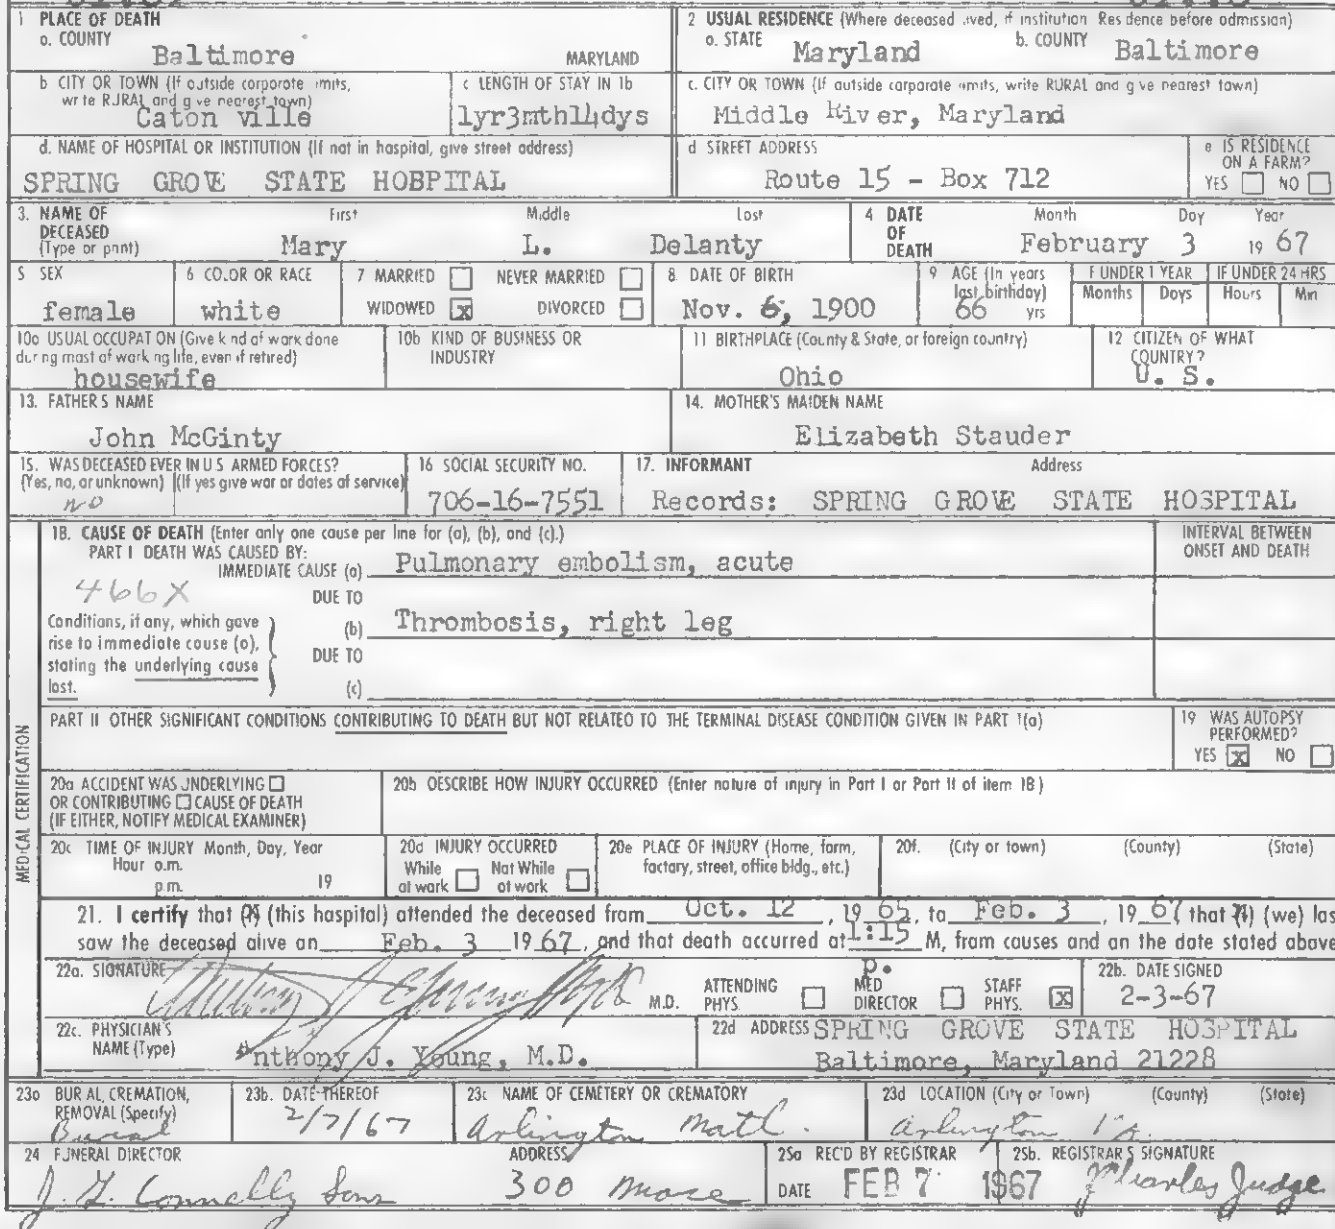 1 PLACE OF DEATH
a. COUNTY
Baltimore
MARYLAND
2 USUAL RESIDENCE (Where deceased lived, if institution Residence before admission)
a. STATE
Maryland
b. COUNTY
Baltimore
b CITY OR TOWN (If outside corporate limits,
write RURAL and give nearest town)
Caton ville
c LENGTH OF STAY IN 1b
1yr3mth14dys
c. CITY OR TOWN (If outside corporate limits, write RURAL and give nearest town)
Middle River, Maryland
d. NAME OF HOSPITAL OR INSTITUTION (If not in hospital, give street address)
SPRING GROVE STATE HOBPITAL
d STREET ADDRESS
Route 15 - Box 712
e IS RESIDENCE
ON A FARM?
YES NO
3. NAME OF
DECEASED
(Type or print)
First Middle Last
Mary L. Delanty
4 DATE
OF
DEATH
Month Day Year
February 3 19 67
5 SEX
female
6 COLOR OR RACE
white
7 MARRIED NEVER MARRIED
WIDOWED x DIVORCED
8 DATE OF BIRTH
Nov. 6, 1900
9 AGE (In years
last birthday)
66 yrs
IF UNDER 1 YEAR
Months Days
IF UNDER 24 HRS
Hours Min
10a USUAL OCCUPATION (Give kind of work done
during most of working life, even if retired)
housewife
10b KIND OF BUSINESS OR
INDUSTRY
11 BIRTHPLACE (County & State, or foreign country)
Ohio
12 CITIZEN OF WHAT
COUNTRY?
U. S.
13. FATHERS NAME
John McGinty
14. MOTHER'S MAIDEN NAME
Elizabeth Stauder
15. WAS DECEASED EVER IN U S ARMED FORCES?
(Yes, no, or unknown) (If yes give war or dates of service)
no
16 SOCIAL SECURITY NO.
706-16-7551
17. INFORMANT Address
Records: SPRING GROVE STATE HOSPITAL
MEDICAL CERTIFICATION
18. CAUSE OF DEATH (Enter only one cause per line for (a), (b), and (c).)
PART I DEATH WAS CAUSED BY:
IMMEDIATE CAUSE (a) Pulmonary embolism, acute
INTERVAL BETWEEN
ONSET AND DEATH
466X
DUE TO
Conditions, if any, which gave
rise to immediate cause (a),
stating the underlying cause
last.
(b) Thrombosis, right leg
DUE TO
(c)
PART II OTHER SIGNIFICANT CONDITIONS CONTRIBUTING TO DEATH BUT NOT RELATED TO THE TERMINAL DISEASE CONDITION GIVEN IN PART I(a)
19 WAS AUTOPSY
PERFORMED?
YES x NO
20a ACCIDENT WAS UNDERLYING
OR CONTRIBUTING CAUSE OF DEATH
(IF EITHER, NOTIFY MEDICAL EXAMINER)
20b DESCRIBE HOW INJURY OCCURRED (Enter nature of injury in Part I or Part II of item 18)
20c TIME OF INJURY Month, Day, Year
Hour a.m.
p.m. 19
20d INJURY OCCURRED
While at work Not While at work
20e PLACE OF INJURY (Home, farm,
factory, street, office bldg., etc.)
20f. (City or town) (County) (State)
21. I certify that (I) (this hospital) attended the deceased from Oct. 12, 19 65, to Feb. 3, 19 67 that (I) (we) las
saw the deceased alive on Feb. 3 19 67, and that death occurred at 1:15 p. M, from causes and on the date stated above
22a. SIGNATURE
M.D.
ATTENDING
PHYS.
MED
DIRECTOR
STAFF
PHYS. x
22b. DATE SIGNED
2-3-67
22c. PHYSICIAN'S
NAME (Type)
Anthony J. Young, M.D.
22d ADDRESS SPRING GROVE STATE HOSPITAL
Baltimore, Maryland 21228
23a BURIAL, CREMATION,
REMOVAL (Specify)
Burial
23b. DATE THEREOF
2/7/67
23c NAME OF CEMETERY OR CREMATORY
Arlington Natl.
23d LOCATION (City or Town) (County) (State)
Arlington Va.
24 FUNERAL DIRECTOR
J. G. Connelly Sons
ADDRESS
300 Mace
25a REC'D BY REGISTRAR
DATE FEB 7 1967
25b. REGISTRAR'S SIGNATURE
Charles Judge